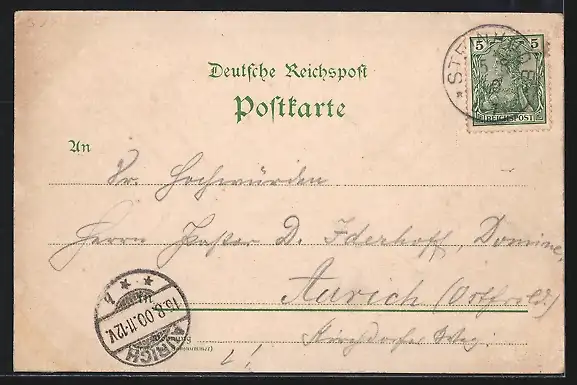 Deutsche Reichspost
Postkarte
5 5
REICHSPOST
STEINH
An
Sr. Hochwürden
Herrn Pastor D. Iderhoff, Domine,
Aurich (Ostfrsld.)
Kirchdorfer Weg.
AURICH
15.8.00.11-12V.
Wohnung